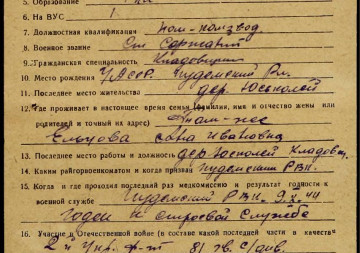 5. Образование
6. На ВУС 1
7. Должностная квалификация пом-комзвод.
8. Военное звание Ст Сержант
9. Гражданская специальность Кладовщик
10. Место рождения УАССР. Пудемский Р-н.
11. Последнее место жительства дер. Юсьполей
12. Где проживает в настоящее время семья (фамилия, имя и отчество жены или
родителей и точный их адрес) Там-же
Ельцова Анна Ивановна
13. Последнее место работы и должность дер. Юсьполей Кладовщ.
14. Каким райгорвоенкоматом и когда призван Пудемским РВК.
15. Когда и где проходил последний раз медкомиссию и результат годности к
военной службе Пудемский РВК. 9.X.44
Годен к строевой Службе
16. Участие в Отечественной войне (в составе какой последней части в качестве
2й Укр. ф-т 81 гв. с/див.